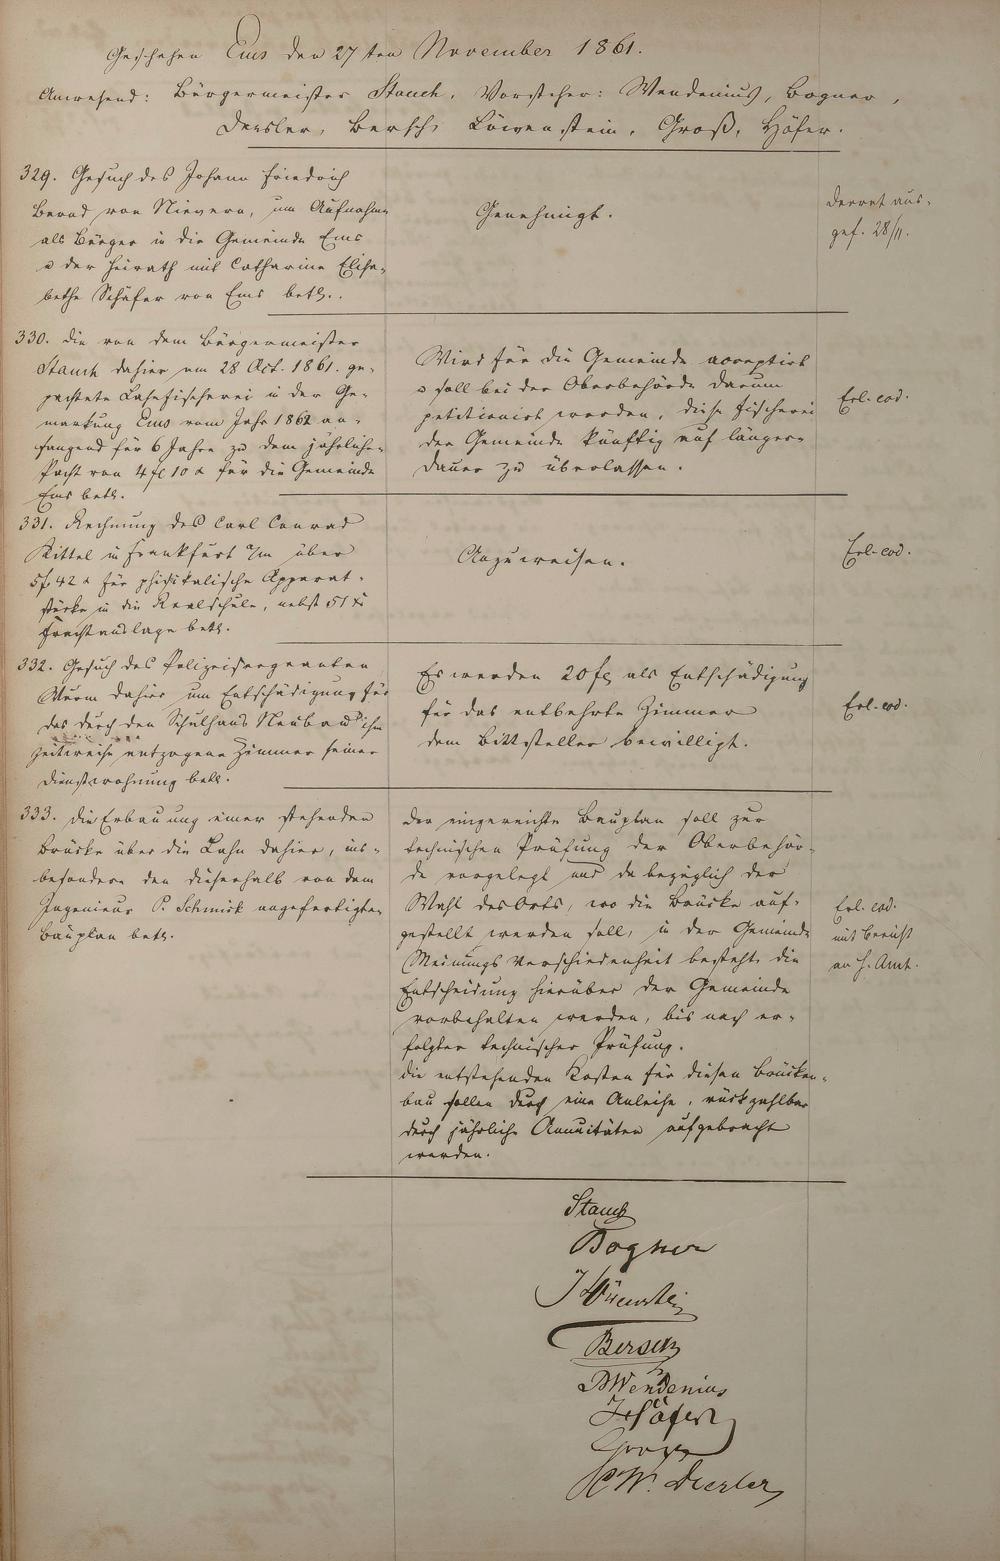 Geschehen Ems den 27ten November 1861.
Anwesend: Bürgermeister Stauch, Vorsteher: Wendenius, Bogner,
Deusler, Bersch, Löwenstein, Groß, Höfer.
329. Gesuch des Johann Friedrich
von Nievern, um Aufnahme
als Bürger in die Gemeinde Ems
u der Heirath mit Catharine Elisa-
bethe Schäfer von Ems betr.
Genehmigt.
Decret aus-
gef. 28/11.
330. Die von dem Bürgermeister
Stauch dahier am 28 Oct. 1861. ge-
pachtete Lahnfischerei in der Ge-
markung Ems vom Jahr 1862 an-
fangend für 6 Jahre zu dem jährlichen
Pacht von 4 fl 10 x für die Gemeinde
Ems betr.
Wird für die Gemeinde acceptirt
u soll bei der Oberbehörde darum
petitionirt werden, diese Fischerei
der Gemeinde künftig auf längere
Dauer zu überlassen.
Erl. eod.
331. Rechnung des Carl Conrad
Kittel in Frankfurt a/m über
5 f 42 x für phisikalische Apparat-
stücke in die Realschule, nebst 51 x
Frachtauslage betr.
Anzuweisen.
Erl. eod.
332. Gesuch des Polizeisergeanten
Wurm dahier um Entschädigung für
das durch den Schulhaus Neubau ihm
zeitweise entzogene Zimmer seiner
Dienstwohnung betr.
Es werden 20 fl als Entschädigung
für das entbehrte Zimmer
dem Bittsteller bewilligt.
Erl. eod.
333. Die Erbauung einer stehenden
Brücke über die Lahn dahier, ins-
besondere den dieserhalb von dem
Ingenieur P. Schmick angefertigten
Bauplan betr.
Der eingereichte Bauplan soll zur
technischen Prüfung der Oberbehör-
de vorgelegt und da bezüglich der
Wahl des Orts, wo die Brücke auf-
gestellt werden soll, in der Gemeinde
Meinungs Verschiedenheit besteht die
Entscheidung hierüber der Gemeinde
vorbehalten werden, bis nach er-
folgter technischer Prüfung.
Die entstehenden Kosten für diesen Brücken-
bau sollen durch eine Anleihe, rückzahlbar
durch jährliche Annuitäten aufgebracht
werden.
Erl. eod.
mit Bericht
an H. Amt.
Stauch
Bogner
J Löwenstein
Bersch
Wendenius
J Höfer
Groß
W. Deusler